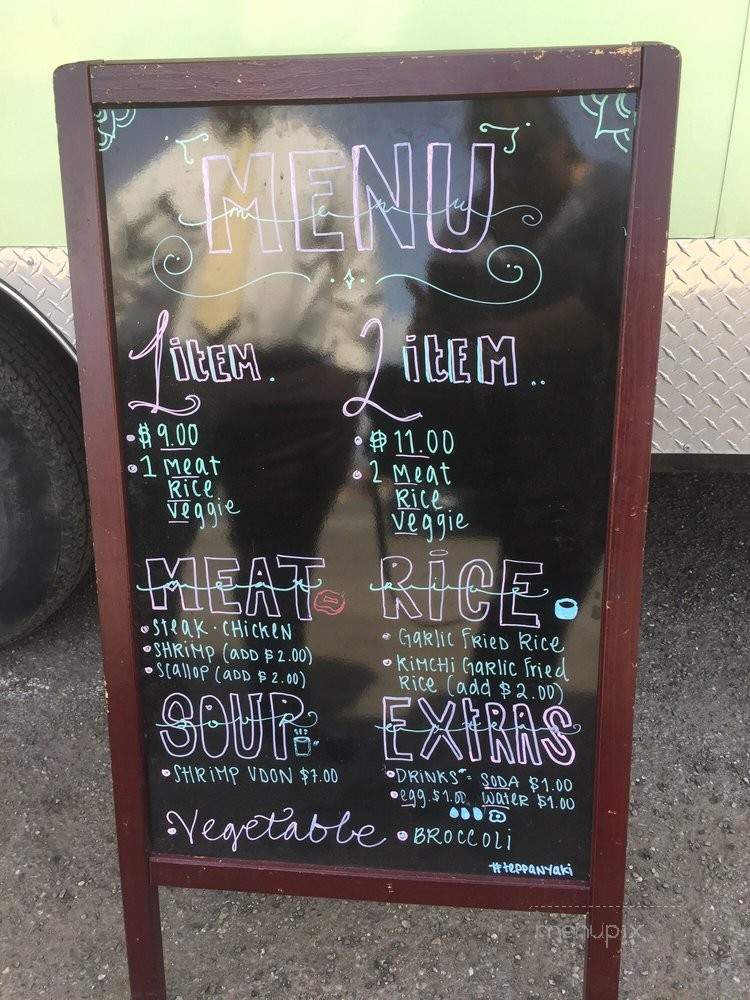 MENU
menu
1 item.
$9.00
1 Meat
Rice
Veggie
2 item..
$11.00
2 Meat
Rice
Veggie
MEAT
meat
Steak · Chicken
Shrimp (add $2.00)
Scallop (add $2.00)
RICE
rice
Garlic Fried Rice
Kimchi Garlic Fried
Rice (add $2.00)
SOUP
soup
Shrimp Udon $7.00
EXTRAS
extras
Drinks = Soda $1.00
egg. $1.00 Water $1.00
Vegetable
Broccoli
#teppanyaki
menupix